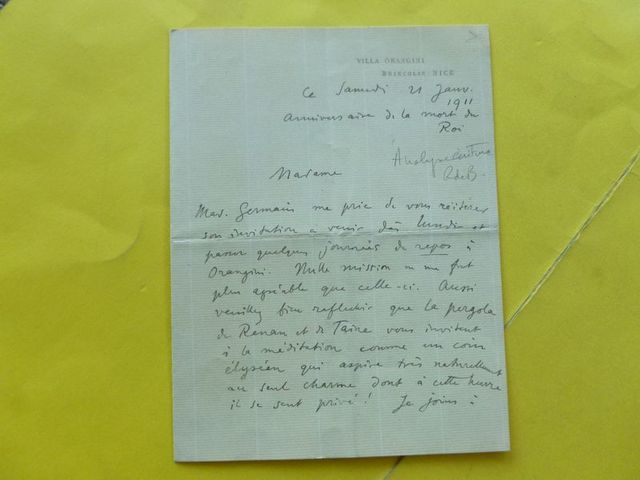 VILLA ORANGINI
BRANCOLAR : NICE
Ce Samedi 21 Janv.
1911
Anniversaire de la mort du
Roi
Analyse écriture
R de B.
Madame
Mad. Germain me prie de vous réitérer
son invitation a venir dès lundi et
passer quelques journées de repos à
Orangini. Nulle mission ne me fut
plus agréable que celle-ci. Aussi
veuillez bien reflechir que la pergola
de Renan et de Taine vous invitent
à la méditation comme un coin
élyséen qui aspire très naturellement
au seul charme dont à cette heure
il se sent privé ! Je joins à